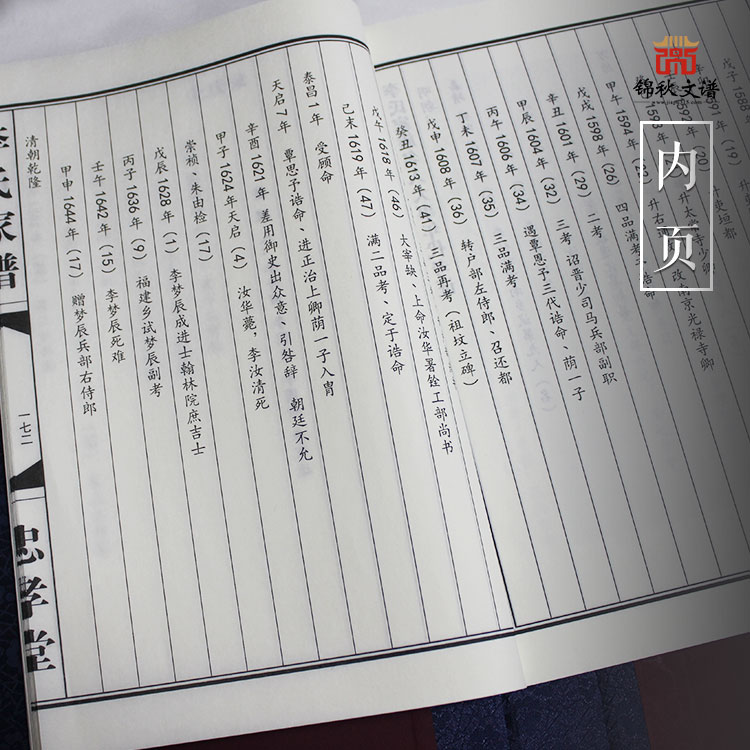 锦秋文谱
内页
戊子 1588
1591 年 (19) 升太常寺少卿
升右 改南京光禄寺卿
甲午 1594 年 四品满考、诰命
戊戌 1598 年 (26) 二考
辛丑 1601 年 (29) 三考 诏晋少司马兵部副职
甲辰 1604 年 (32) 遇覃恩予三代诰命、荫一子
丙午 1606 年 (34) 三品满考
丁未 1607 年 (35) 转户部左侍郎、召还都
戊申 1608 年 (36) 三品再考(祖坟立碑)
癸丑 1613年 (41) 太宰缺、上命汝华署铨工部尚书
戊午 1618 年 (46) 满二品考、定于诰命
己未 1619 年 (47)
泰昌 1 年 受顾命
天启 7 年 覃思予诰命、进正治上卿荫一子入胄
辛酉 1621 年 差用御史出众意、引咎辞 朝廷不允
甲子 1624 年天启 (4) 汝华薨，李汝清死
崇祯、朱由检 (17)
戊辰 1628 年 (1) 李梦辰成进士翰林院庶吉士
丙子 1636 年 (9) 福建乡试梦辰副考
壬午 1642 年 (15) 李梦辰死难
甲申 1644 年 (17) 赠梦辰兵部右侍郎
清朝乾隆
李氏家谱
一七二
忠孝堂